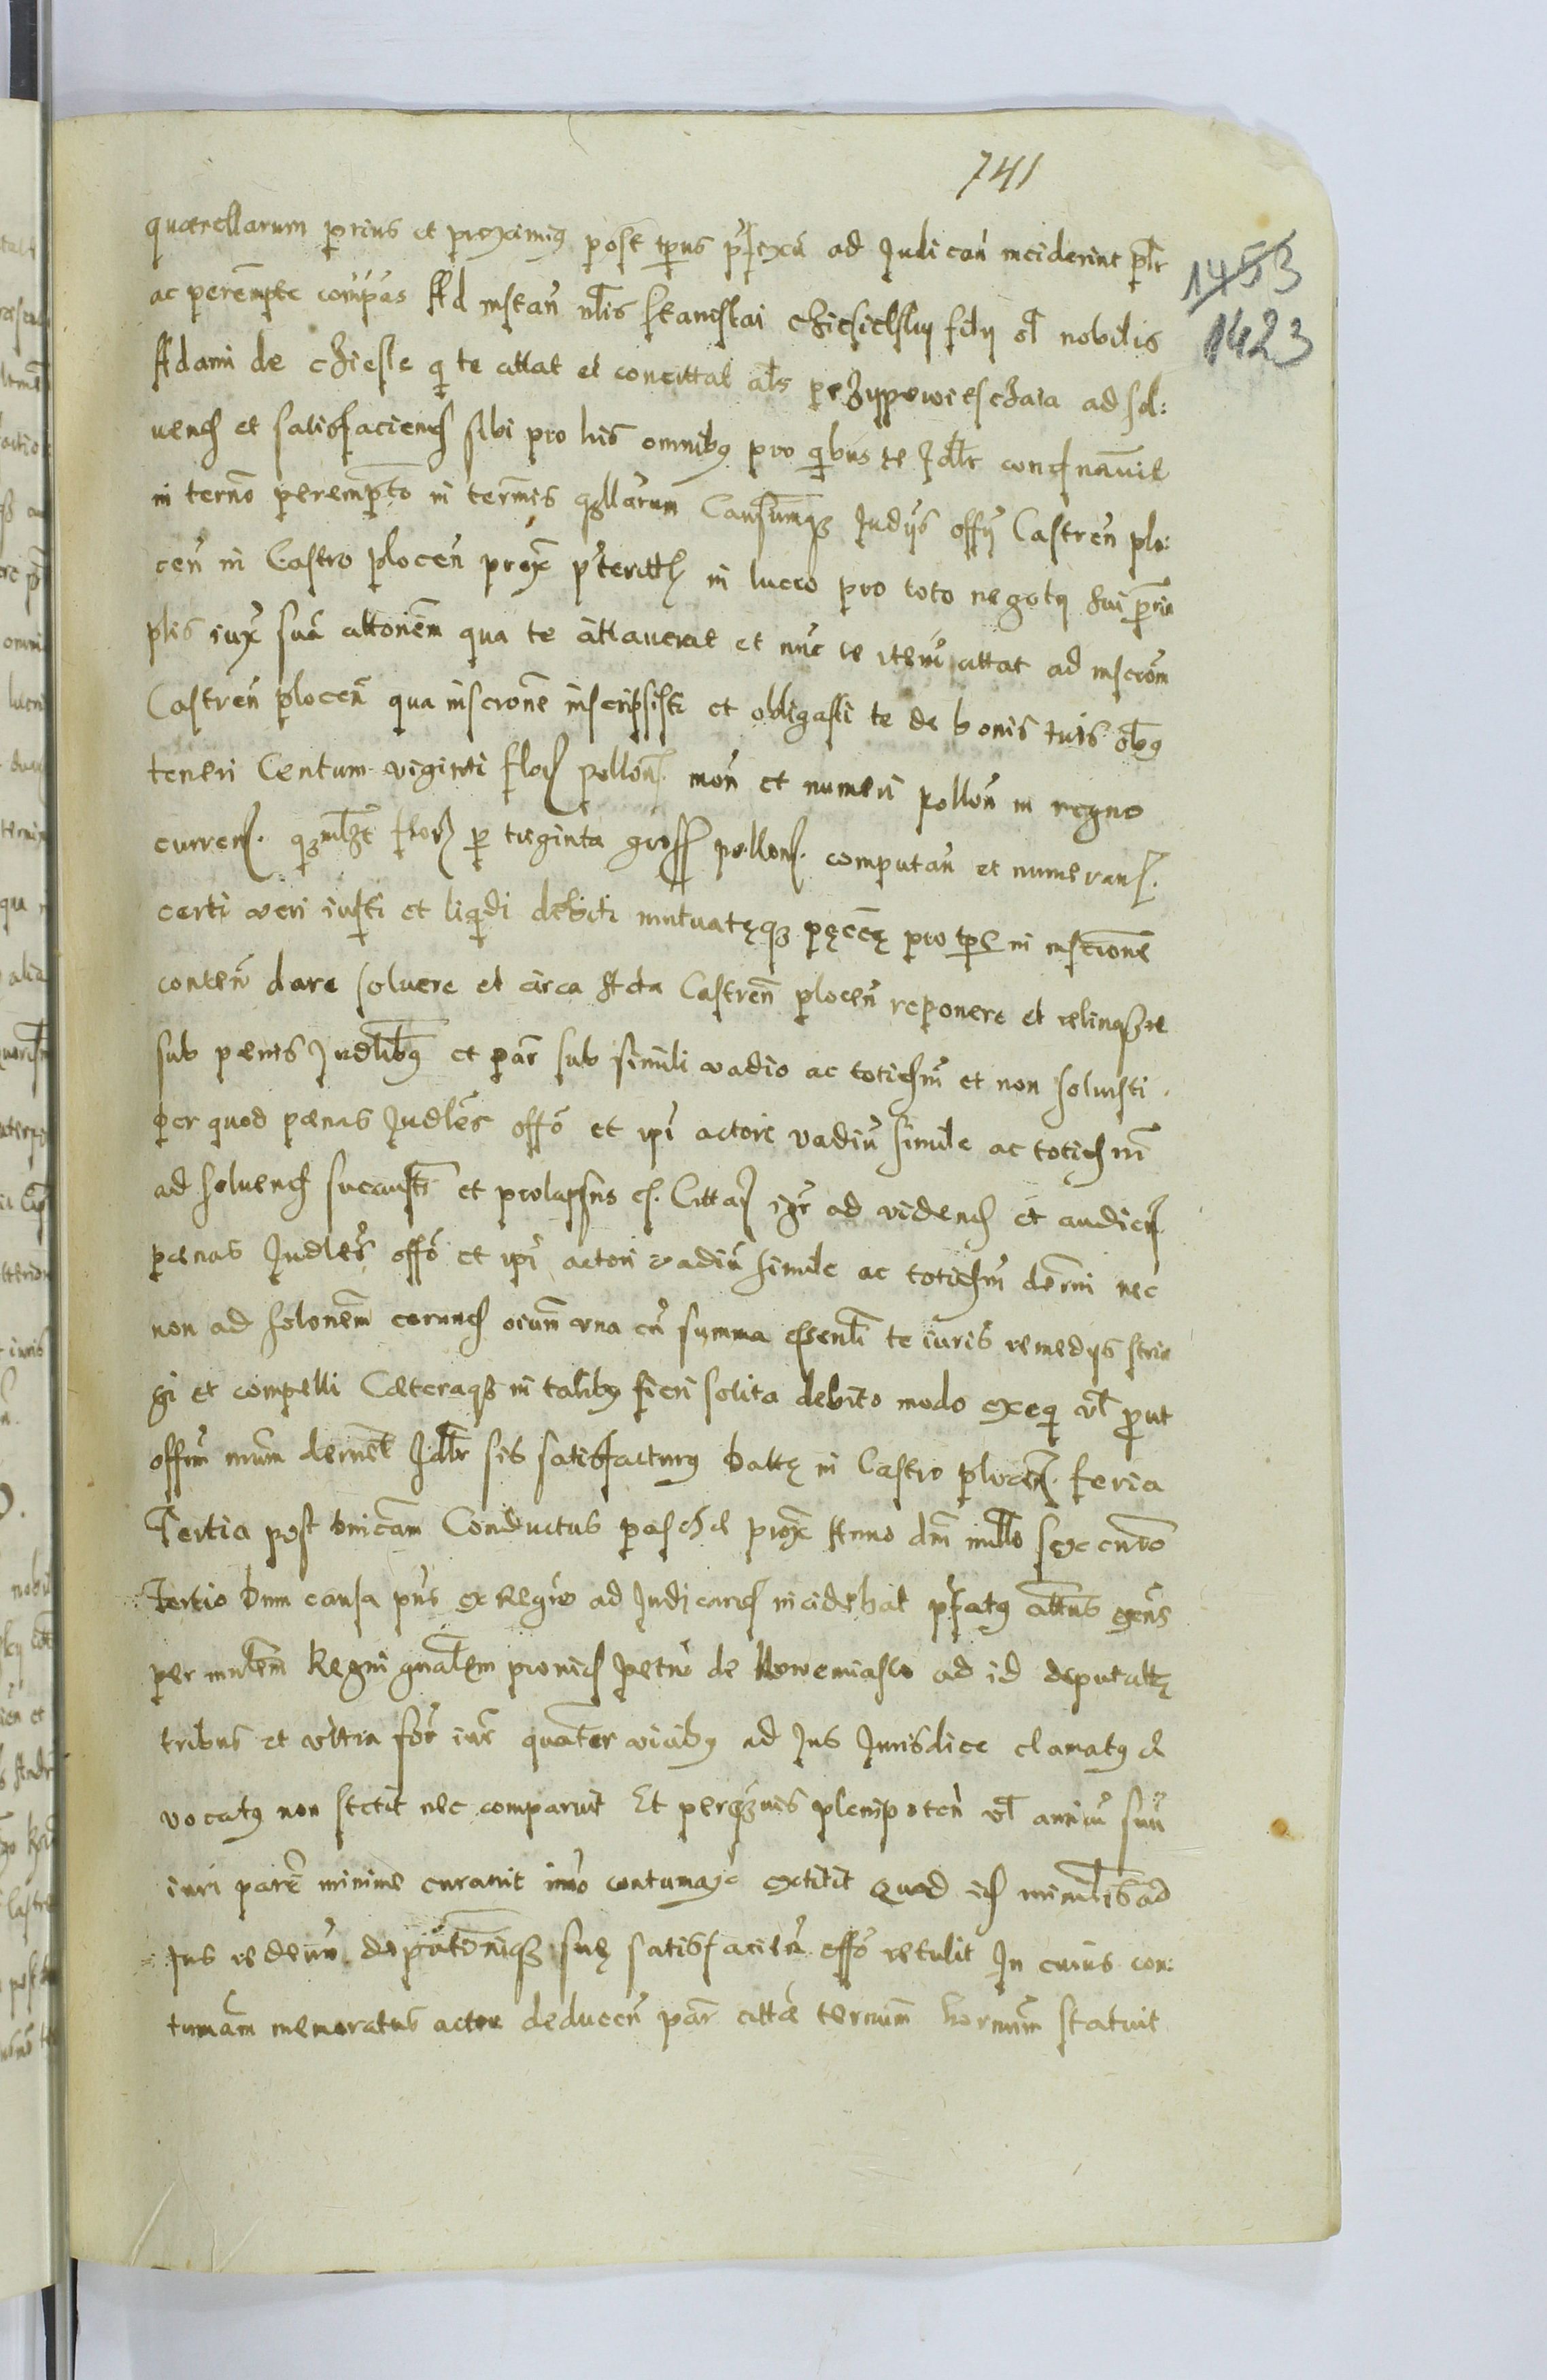 741
1453
1423
quærellarum prius et proximius post tp̄us p̄fixū ad Judicań inciderint pltr
ac peremptē compās Ad instań nlis Stanislai chiesielsky filij ol nobilis
Adami de chiesle q te attat et concittat als przypowiesczaia ad sol:
vend et satisfaciend sibi pro his omnibus pro qbus te Jdlr condnavit
in termō peremptō in termis qllarum Causarumq Judijs offij Castreń plo:
ceń in Castro ploceń prox pterittis in lucro pro toto negotij sui prin
plis iux suā attonem qua te attaverat et nuc te iterū attat ad inscrōm
Castreń ploceń qua inscrone inscripsisti et obligasti te de bonis tuis oibus
teneri Centum viginti flor pollon. moń et numeri polloń in regno
curren. qmlzt flor p triginta gross pollon. computań et numeran.
certi veri iusti et liqdi debiti mutuatęq pęcnę pro tpe in inscrone
conteń dare solvere et circa Acta Castreń ploceń reponere et relinqre
sub pænis Judlibus et par sub simili vadio ac totidm et non solvisti.
per quod pænas Judles offō et ipi actore vadiū simile ac totidm
ad solvend succubsti et prolapsus es. Cittas igr ad videnđ et audien
pænas Judles offō et ipi actori vadiū simile ac totidm decrni nec
non ad solonem eorund oium una cū summa essenli te iuris remedijs strin
gi et compelli Cæteraq in talibus fieri solita debito modo exeq vl prout
offm nrum decrnet Jdlr sis satisfacturus Dattę in Castro plocen. feria
Tertia post dnicam Conductus paschæ prox Anno dni millō sexcentō
Tertio Dum causa pns ex Regrō ad Judicanđ incidebat pfatus attus
per mnlem Regni gnalem provid Petrū de Nowemiasto ad id deputattę
tribus et ultra for iur quater vicibus ad Jus Jurisdice clamatus et
vocatus non stetit nec comparuit Et perqmvis plenipoteń vl amicū suū
iuri parere minime curavit imo contumax extitit quod id minlis ad
Jus redeun depōtoniq suę satisfacień offō retulit In cuius con:
tumām memoratus actor deduceń par cittæ termum hornum statuit